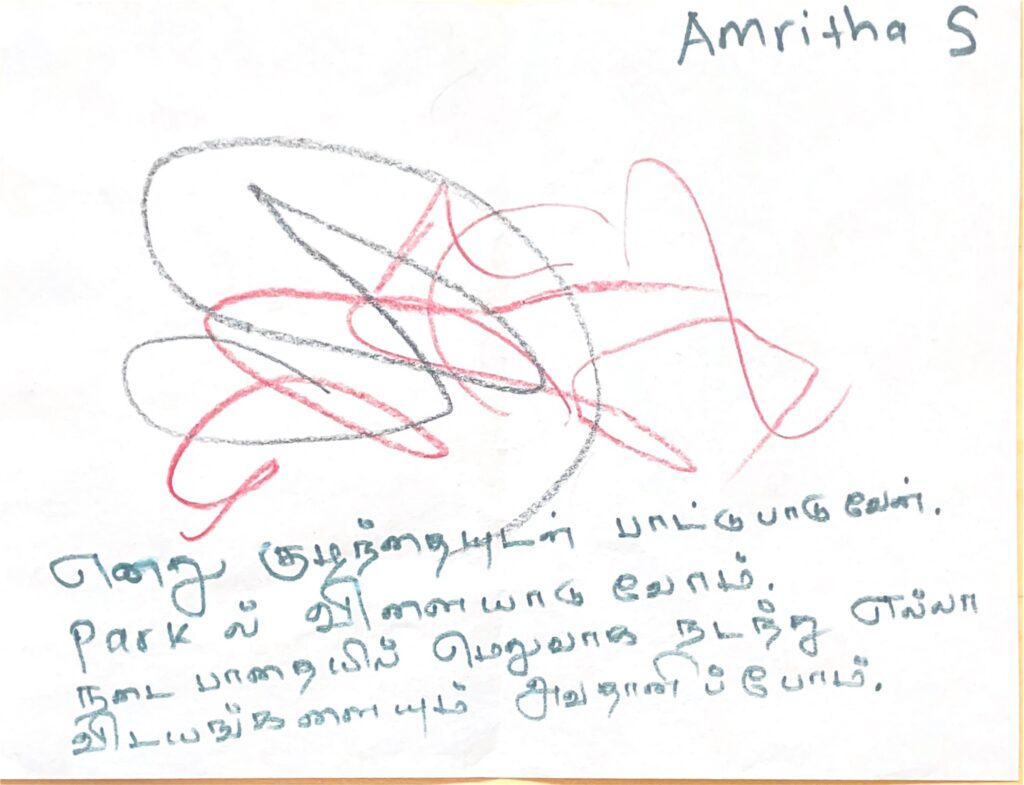 Amritha S
எனது குழந்தையுடன் பாட்டு பாடுவேன்.
Park ல் விளையாடுவோம்.
நடை பாதையில் மெதுவாக நடந்து எல்லா
விடயங்களையும் அவதானிப்போம்.